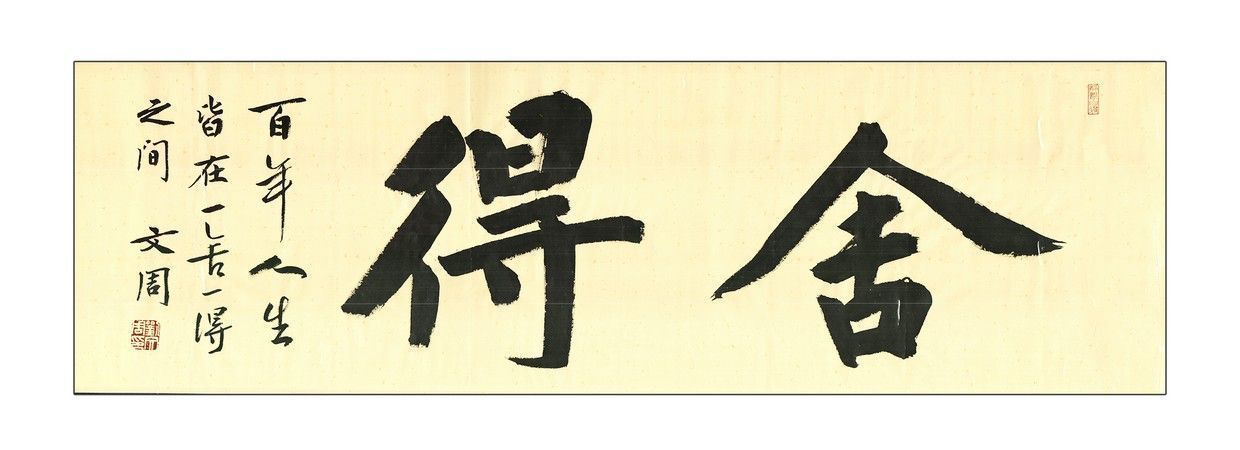 舍得
百年人生
皆在一舍一得
之间 文周